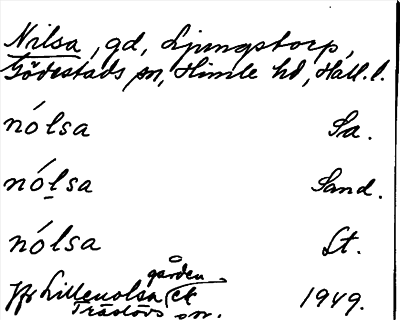 Nilsa, gd, Ljungstorp,
Gödestads sn, Himle hd, Hall. l.
nólsa Sa.
nó̱lsa Sand.
nólsa St.
gården
Jfr Lillenolsa et 1949.
Träslövs sn.